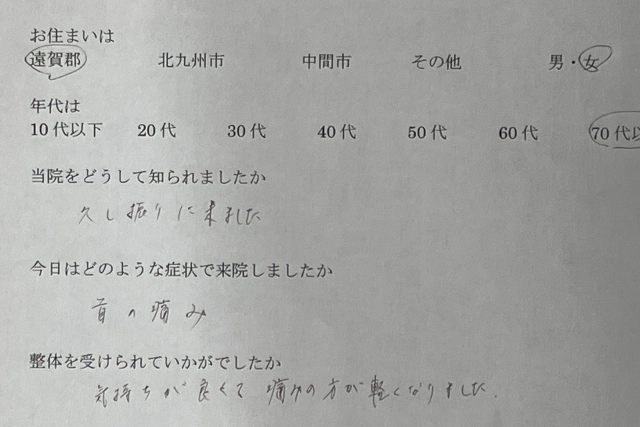 お住まいは
遠賀郡 北九州市 中間市 その他 男・女
年代は
10代以下 20代 30代 40代 50代 60代 70代以
当院をどうして知られましたか
久し振りに来ました
今日はどのような症状で来院しましたか
首の痛み
整体を受けられていかがでしたか
気持ちが良くて 痛みの方が軽くなりました.